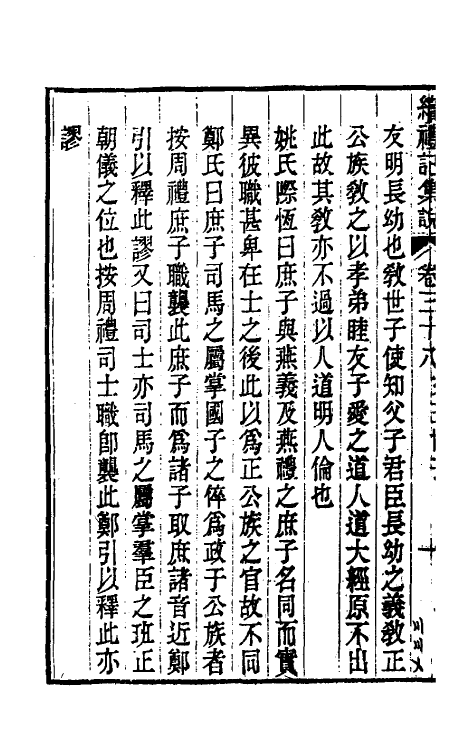 續禮記集說
卷三十八
友明長幼也敎世子使知父子君臣長幼之義敎正
公族敎之以孝弟睦友子愛之道人道大經原不出
此故其敎亦不過以人道明人倫也
姚氏際恆曰庶子與燕義及燕禮之庶子名同而實
異彼職甚卑在士之後此以爲正公族之官故不同
鄭氏曰庶子司馬之屬掌國子之倅爲政于公族者
按周禮庶子職襲此庶子而爲諸子取庶諸音近鄭
引以釋此謬又曰司士亦司馬之屬掌羣臣之班正
朝儀之位也按周禮司士職卽襲此鄭引以釋此亦
謬